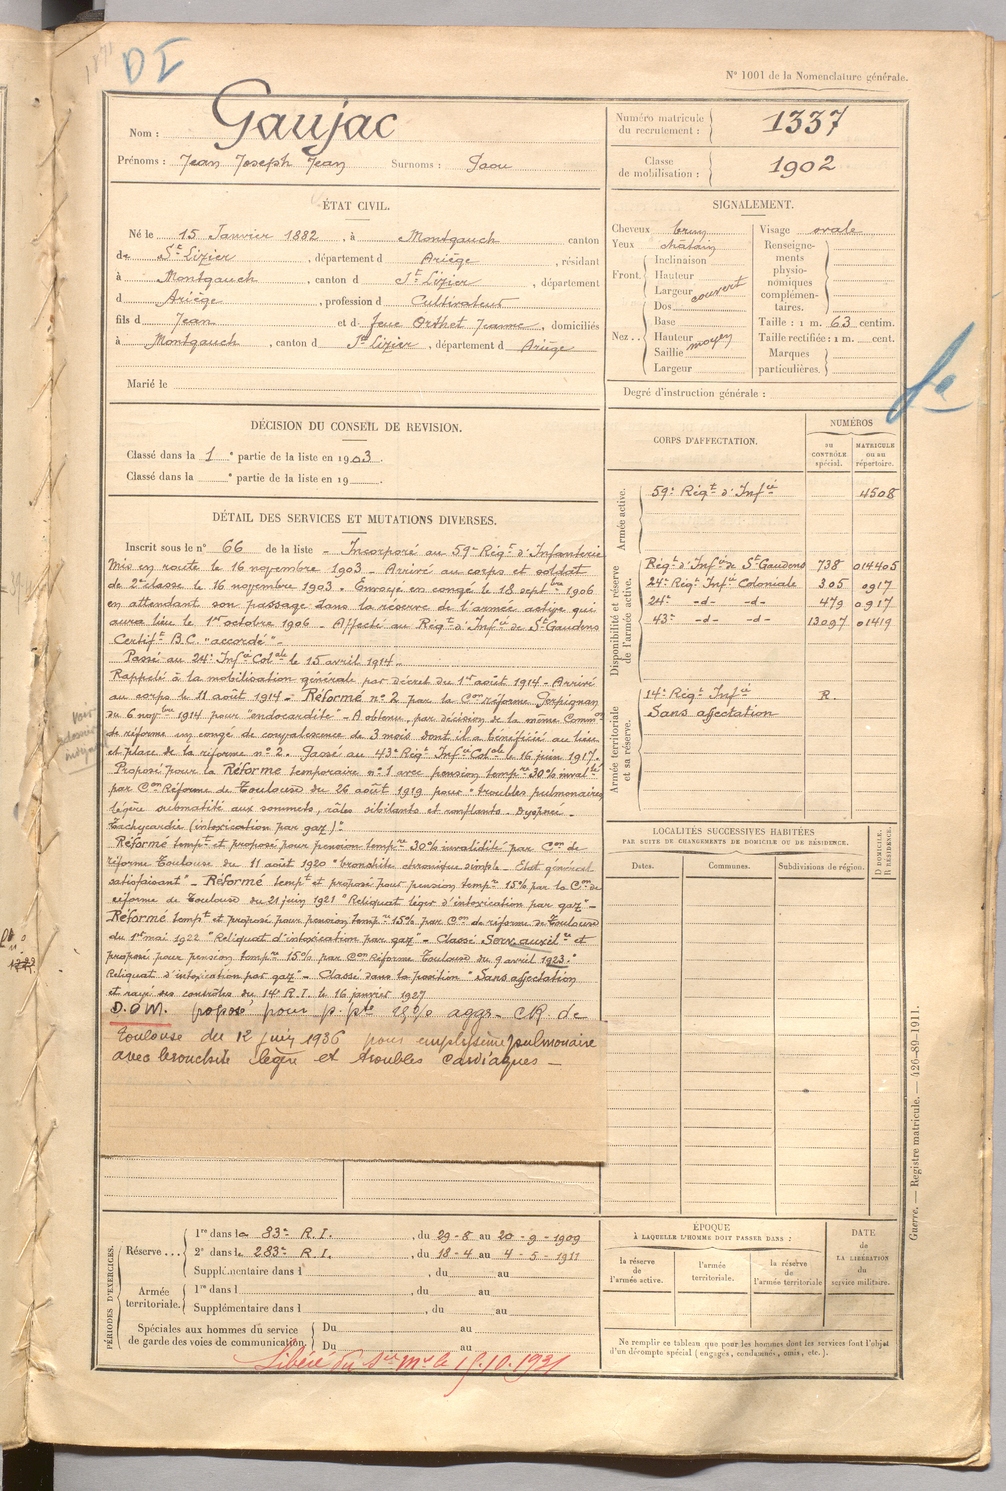 DI
N° 1001 de la Nomenclature générale.
Nom : Gaujac
Prénoms : Jean Joseph Jean Surnoms : Paou
Numéro matricule du recrutement : 1337
Classe de mobilisation : 1902
ÉTAT CIVIL.
Né le 15 Janvier 1882, à Montgauch canton
de St Lizier, département d Ariège, résidant
à Montgauch, canton d St Lizier, département
d Ariège, profession d Cultivateur
fils d Jean et d feue Orthet Jeanne, domiciliés
à Montgauch, canton d St Lizier, département d Ariège
Marié le
SIGNALEMENT.
Cheveux brun
Yeux châtain
Front. Inclinaison
Hauteur
Largeur couvert
Nez.. Dos
Base
Hauteur moyen
Saillie
Largeur
Visage ovale
Renseignements physionomiques complémentaires.
Taille : 1 m. 63 centim.
Taille rectifiée : 1 m. cent.
Marques particulières.
Degré d'instruction générale :
DÉCISION DU CONSEIL DE REVISION.
Classé dans la 1e partie de la liste en 1903.
Classé dans la e partie de la liste en 19 .
DÉTAIL DES SERVICES ET MUTATIONS DIVERSES.
Inscrit sous le n° 66 de la liste - Incorporé au 59e Régt d'Infanterie
Mis en route le 16 novembre 1903 - Arrivé au corps et soldat
de 2e classe le 16 novembre 1903. Envoyé en congé le 18 septbre 1906
en attendant son passage dans la réserve de l'armée active qui
aura lieu le 1er octobre 1906 - Affecté au Régt d'Infie de St Gaudens
Certift B.C. "accordé" -
Passé au 24e Infie Colale le 15 avril 1914.
Rappelé à la mobilisation générale par décret du 1er août 1914 - Arrivé
au corps le 11 août 1914 - Réformé n° 2 par la Con réforme Perpignan
du 6 novbre 1914 pour "endocardite" - A obtenu, par décision de la même Common
de réforme un congé de convalescence de 3 mois dont il a bénéficié au lieu
et place de la réforme n° 2. Passé au 43e Régt Infie Colale le 16 juin 1917.
Proposé pour la Réforme temporaire n° 1 avec pension tempre 30% invalté
par Con Réforme de Toulouse du 26 août 1919 pour "troubles pulmonaires
légère submatité aux sommets, râles sibilants et ronflants. Dyspnée -
Tachycardie (intoxication par gaz)".
Réformé tempt et proposé pour pension tempre 30% invalidité par Con de
réforme Toulouse du 11 août 1920 "bronchite chronique simple - Etat général
satisfaisant" - Réformé tempt et proposé pour pension tempre 15% par la Con de
réforme de Toulouse du 21 juin 1921 "Reliquat léger d'intoxication par gaz" -
Réformé tempt et proposé pour pension tempre 15% par Con de réforme de Toulouse
du 1er mai 1922 "Reliquat d'intoxication par gaz" - Classé Serv. auxilre et
proposé pour pension tempre 15% par Con Réforme Toulouse du 9 avril 1923 "
Reliquat d'intoxication par gaz" - Classé dans la position "Sans affectation
et rayé des contrôles du 14e R.I. le 16 janvier 1927
D.O.M. proposé pour p. pte 15% aggr. CR de
Toulouse du 12 juin 1936 pour emphysème pulmonaire
avec bronchite légère et troubles cardiaques -
CORPS D'AFFECTATION.
NUMÉROS
au CONTRÔLE spécial.
MATRICULE ou au répertoire.
Armée active.
59e Régt d'Infie 4508
Disponibilité et réserve de l'armée active.
Régt d'Infie de St Gaudens 738 014405
24e Régt Infie Coloniale 305 0917
24e -d- -d- 479 0917
43e -d- -d- 13097 01419
Armée territoriale et sa réserve.
14e Régt Infie R.
Sans affectation
LOCALITÉS SUCCESSIVES HABITÉES
PAR SUITE DE CHANGEMENTS DE DOMICILE OU DE RÉSIDENCE.
Dates. Communes. Subdivisions de région. D DOMICILE. R RÉSIDENCE.
PÉRIODES D'EXERCICES.
Réserve ... 1re dans la 83e R.I. , du 29-8 au 20-9-1909
2e dans le 283e R.I. , du 18-4 au 4-5-1911
Supplémentaire dans l , du au
Armée territoriale. 1re dans l , du au
Supplémentaire dans l , du au
Spéciales aux hommes du service de garde des voies de communication. Du au
Du au
Libéré du Sce Mre le 15.10.1931
ÉPOQUE
À LAQUELLE L'HOMME DOIT PASSER DANS :
la réserve de l'armée active.
l'armée territoriale.
la réserve de l'armée territoriale
DATE de LA LIBÉRATION du service militaire.
Ne remplir ce tableau que pour les hommes dont les services font l'objet
d'un décompte spécial (engagés, condamnés, omis, etc.).
Guerre. — Registre matricule. — 426-89-1911.